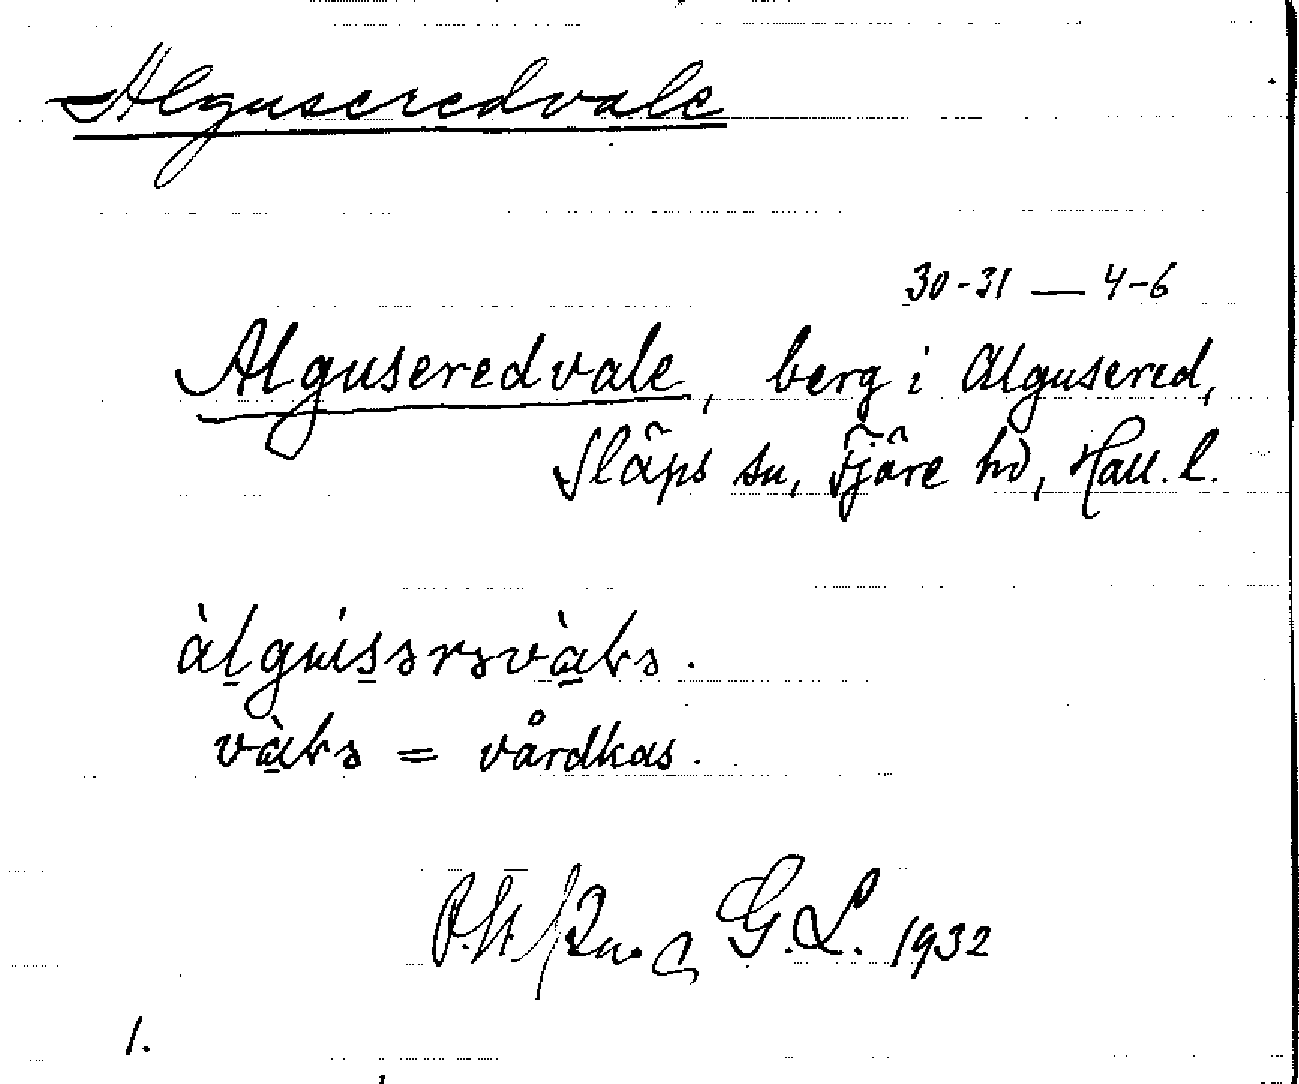 Alguseredvale
30-31 — 4-6
Alguseredvale, berg i Algusered,
Släps sn, Fjäre hd, Hall. l.
vårdkas.
G. L. 1932
1.